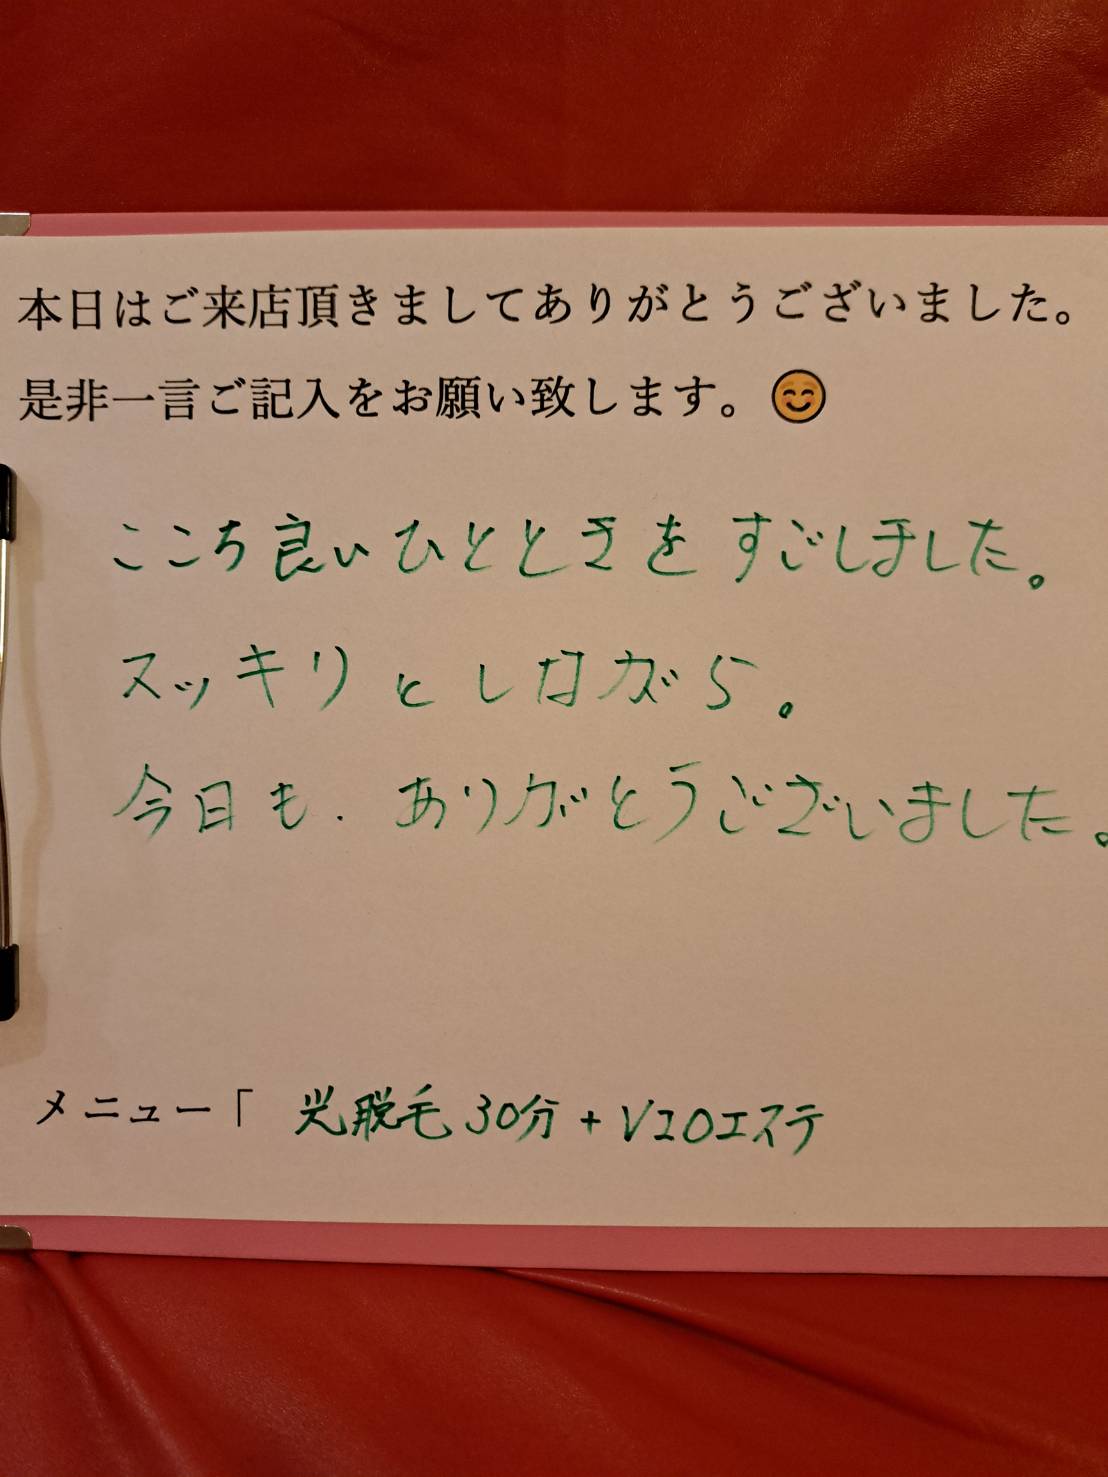 本日はご来店頂きましてありがとうございました。
是非一言ご記入をお願い致します。😊
ここち良いひとときをすごしました。
スッキリとしながら。
今日も、ありがとうございました。
メニュー「 光脱毛30分+VIOエステ